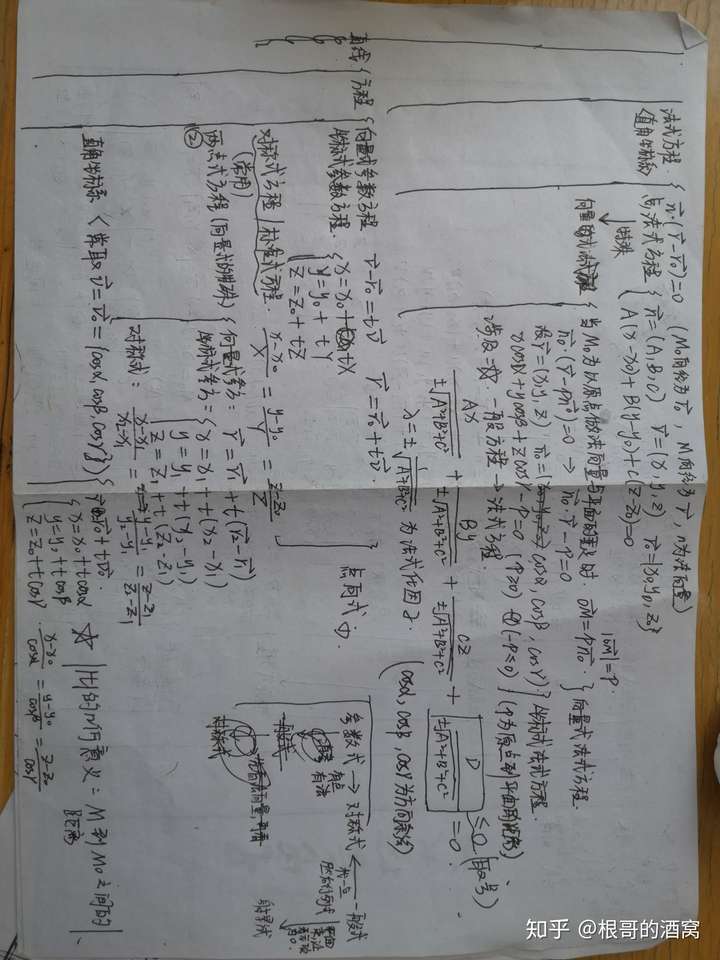 法式方程
(直角坐标系)
n⃗·(r⃗-r⃗₀)=0 (M₀向径为r⃗₀, M向径为r⃗, n为法向量)
点法式方程 { n⃗={A,B,C} r⃗={x,y,z} r⃗₀={x₀,y₀,z₀}
A(x-x₀)+B(y-y₀)+C(z-z₀)=0
↓特殊
向量式法式方程 { 当M₀为以原点做法向量与平面的交点时 OM⃗=Pn⃗₀. |OM⃗|=P
n⃗₀·(r⃗-Pn⃗₀)=0 → n⃗₀·r⃗-P=0 } 向量式法式方程.
设r⃗={x,y,z} n⃗₀={cosα,cosβ,cosγ} 坐标式法式方程.
xcosα+ycosβ+zcosγ-P=0 (P≥0) (-P≤0) (P为原点到平面的距离)
一般方程 → 法式方程.
Ax/±√A²+B²+C² + By/±√A²+B²+C² + Cz/±√A²+B²+C² + D/±√A²+B²+C² =0. ≤0 (取号)
λ=±1/√A²+B²+C² 为法式化因子. (cosα,cosβ,cosγ为方向余弦)
直线 { 方程 { 向量式参数方程 r⃗-r⃗₀=tv⃗ r⃗=r⃗₀+tv⃗.
坐标式参数方程. { x=x₀+tX
y=y₀+tY
z=z₀+tZ
对称式方程/标准式方程. (x-x₀)/X=(y-y₀)/Y=(z-z₀)/Z
(常用)
点向式①.
②
两点式方程(向量式的特殊) { 向量式参方: r⃗=r⃗₁+t(r⃗₂-r⃗₁)
坐标式参方= { x=x₁+t(x₂-x₁)
y=y₁+t(y₂-y₁)
z=z₁+t(z₂-z₁)
对称式: (x-x₁)/(x₂-x₁)=(y-y₁)/(y₂-y₁)=(z-z₁)/(z₂-z₁)
直角坐标系 { 常取v⃗=v⃗₀={cosα,cosβ,cosγ} } r⃗=r⃗₀+tv⃗₀.
{ x=x₀+tcosα
y=y₀+tcosβ
z=z₀+tcosγ
(x-x₀)/cosα=(y-y₀)/cosβ=(z-z₀)/cosγ
☆ |t|的几何意义=M到M₀之间的距离
参数式 → 对称式 ← 一般式
找一点
知乎 @根哥的酒窝